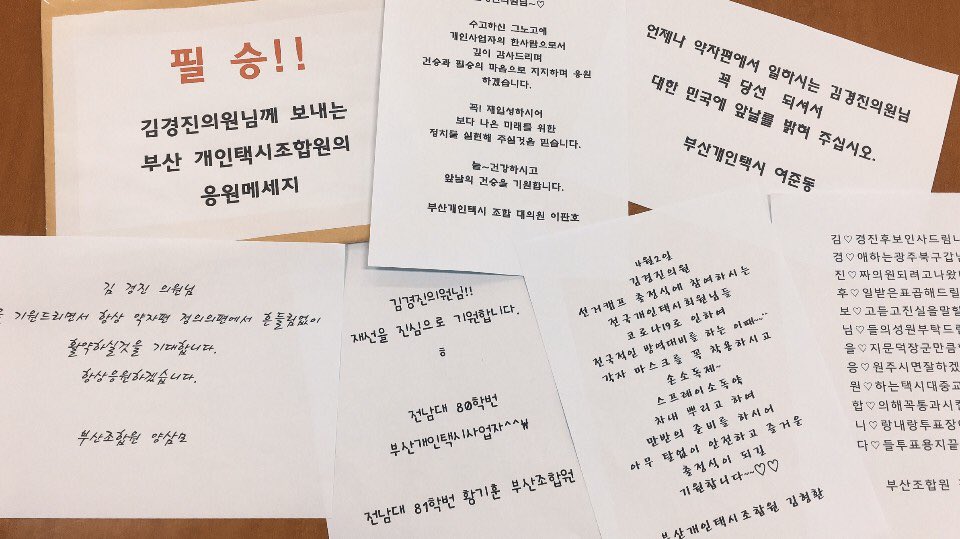 필 승!!
김경진의원님께 보내는
부산 개인택시조합원의
응원메세지
수고하신 그노고에
개인사업자의 한사람으로서
깊이 감사드리며
건승과 필승의 마음으로 지지하며 응원
하겠습니다.
꼭! 재입성하시어
보다 나은 미래를 위한
정치를 실현해 주실것을 믿습니다.
늘~건강하시고
앞날의 건승을 기원합니다.
부산개인택시 조합 대의원 이판호
언제나 약자편에서 일하시는 김경진의원님
꼭 당선 되셔서
대한 민국에 앞날를 밝혀 주십시오.
부산개인택시 여준동
김 경진 의원님
기원드리면서 항상 약자편 정의의편에서 흔들림없이
활약하실것을 기대합니다.
항상응원하겠습니다.
부산조합원 양삼모
김경진의원님!!
재선을 진심으로 기원합니다.
ㅎ
전남대 80학번
부산개인택시사업자^^₩
전남대 81학번 황기훈 부산조합원
4월2일
김경진의원
선거캠프 출정식에 참여하시는
전국개인택시회원님들
코로나19로 인하여
전국적인 방역대비를 하는 이때....
각자 마스크를 꼭 착용하시고
손소독제~
스프레이소독약
차내 뿌리고 하여
만반의 준비를 하시어
아무 탈없이 안전하고 즐거운
출정식이 되길
기원합니다~~♡♡
부산개인택시조합원 김형환
김♡경진후보인사드림니
겸♡애하는광주북구갑
진♡짜의원되려고나왔
후♡일받은표곱해드릴
보♡고듣고진실을말할
님♡들의성원부탁드
을♡지문덕장군만큼
응♡원주시면잘하겠
원♡하는택시대중교
합♡의해꼭통과시킬
니♡랑내랑투표장
다♡들투표용지끝
부산조합원